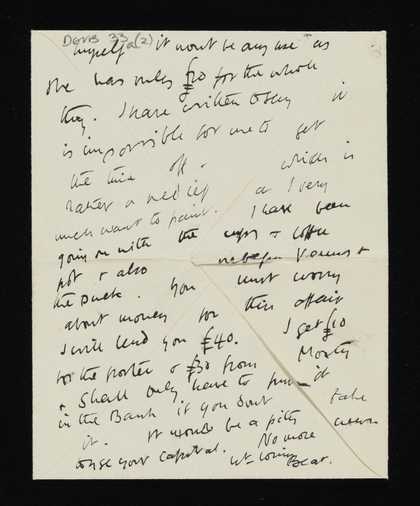 DOVB 33 (2)
myself it wont be any use as
she has only £20 for the whole
thing. I have written to say it
is impossible for me to get
the time off. which is
rather a relief as I very
much want to paint. I have been
going on with the cups & coffee
pot & also Venus &
the Duck. You must worry
about money for this affair
I will lend you £40. I get £10
for the poster & £30 from Monty
& shall only have to put it
in the Bank if you dont take
it. It would be a pity
to use your capital. No more
Bear.